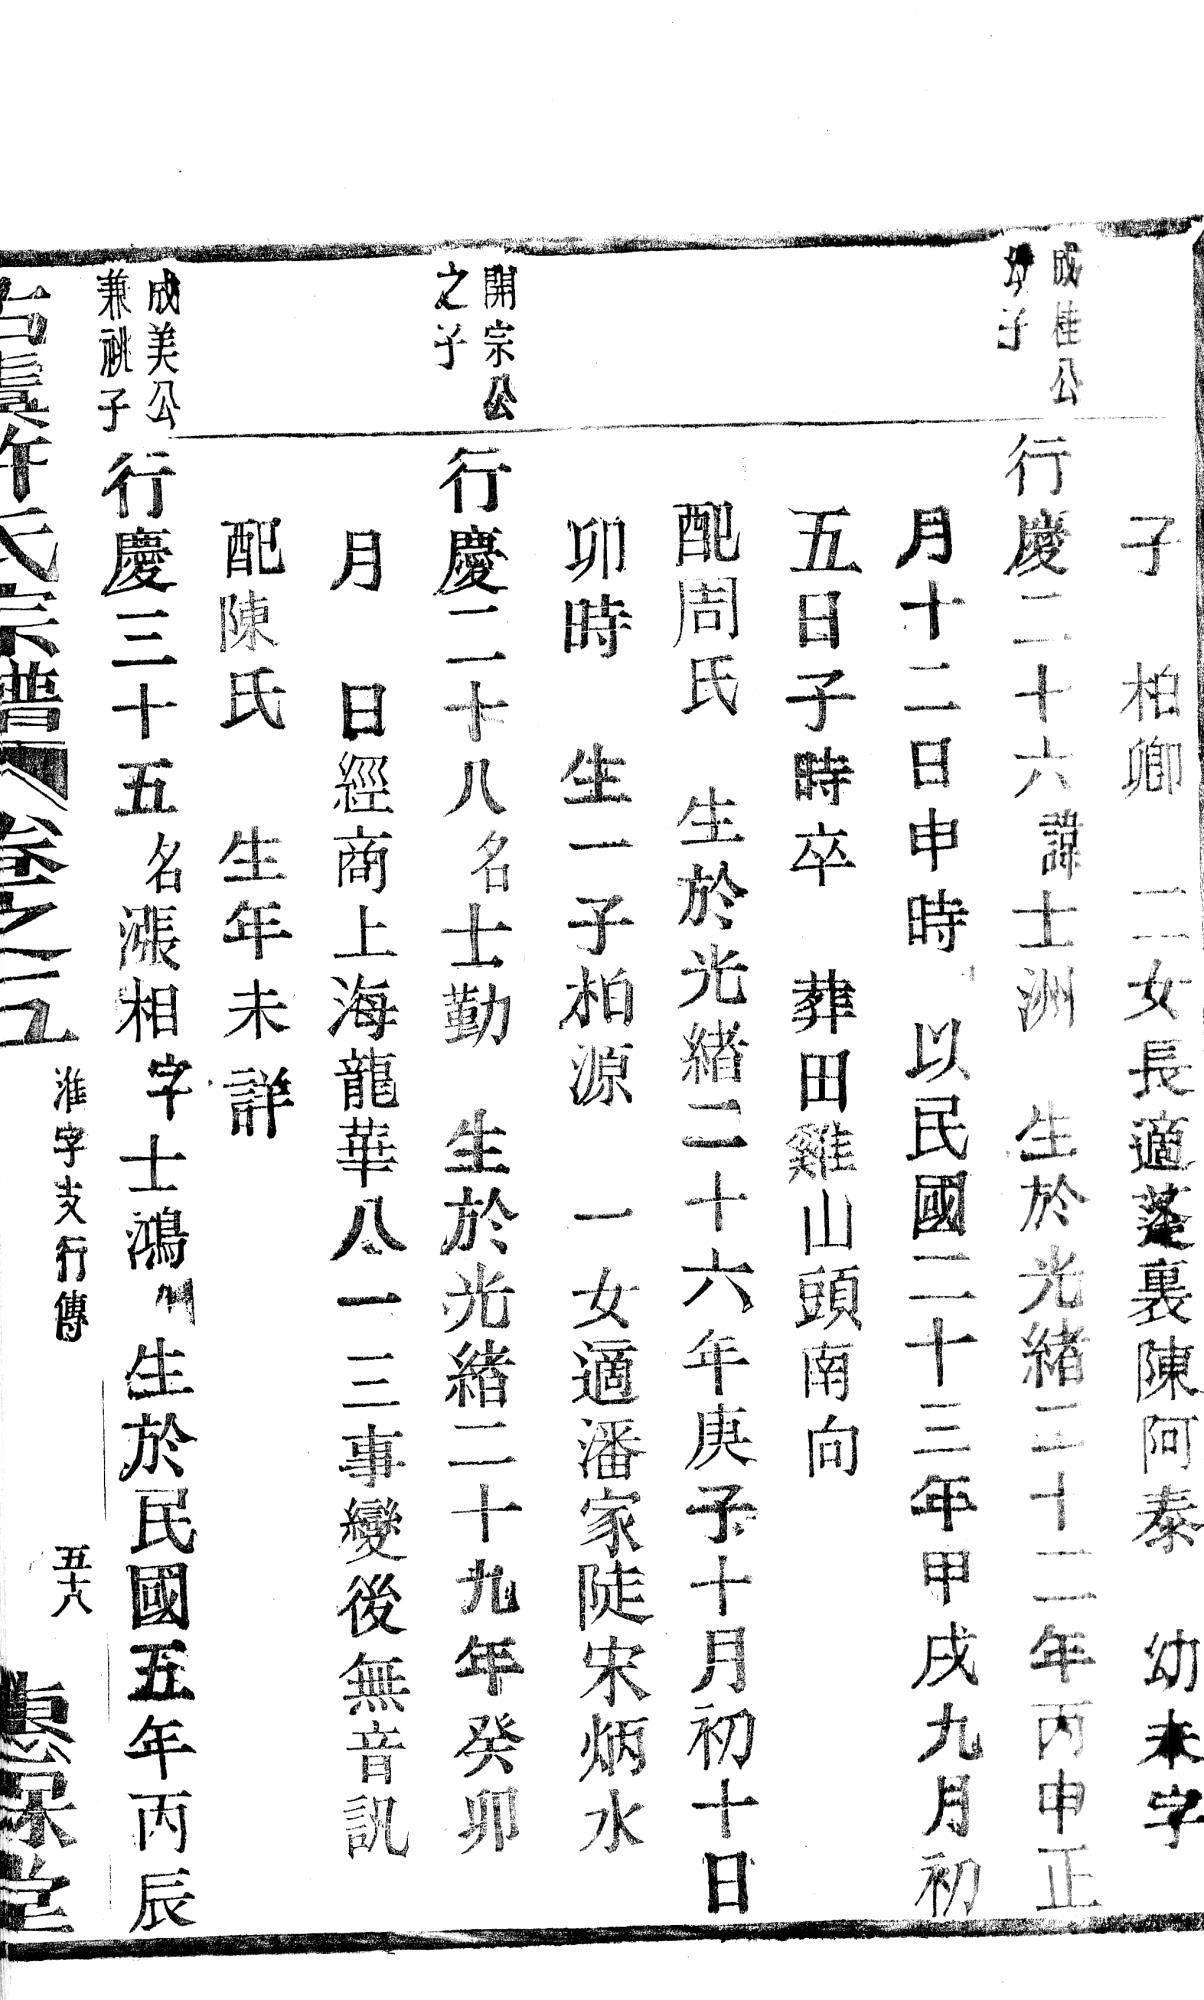 子　柏卿　二女長適蓬裏陳阿泰　幼未字
成桂公
幼子
行慶二十六諱士洲　生於光緒二十二年丙申正
月十二日申時　以民國二十三年甲戌九月初
五日子時卒　葬田雞山頭南向
配周氏　生於光緒二十六年庚子十月初十日
卯時　生一子柏源　一女適潘家陡宋炳水
開宗公
之子
行慶二十八名士勤　生於光緒二十九年癸卯
月　日經商上海龍華八一三事變後無音訊
配陳氏　生年未詳
成美公
兼祧子
行慶三十五名漲相字士鴻　生於民國五年丙辰
古虞許氏宗譜　卷之五　淮字支行傳　五十八